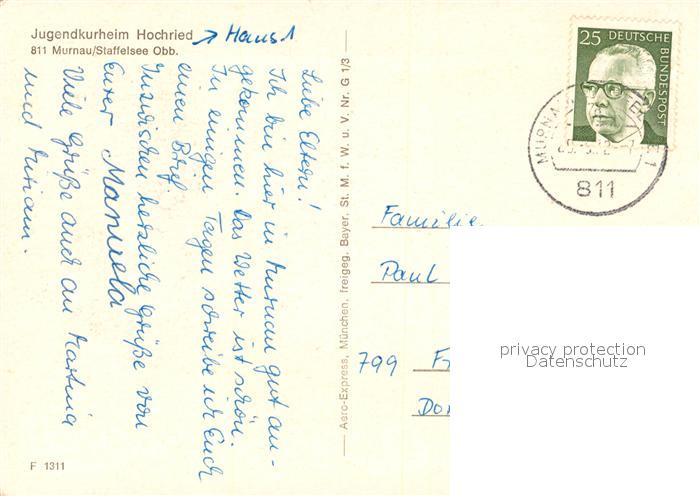 Jugendkurheim Hochried → Haus 1
811 Murnau/Staffelsee Obb.
Liebe Eltern!
Ich bin hier in Murnau gut an-
gekommen. Das Wetter ist schön.
In einigen Tagen schreibe ich Euch
einen Brief
Inzwischen herzliche Grüße von
Eurer Manuela
Viele Grüße auch an Martina
und Miriam.
F 1311
Aero-Express, München, freigeg. Bayer. St. M. f. W. u. V. Nr. G 1/3
25 DEUTSCHE
BUNDESPOST
MURNA
811
Familie
Paul
799
privacy protection
Datenschutz